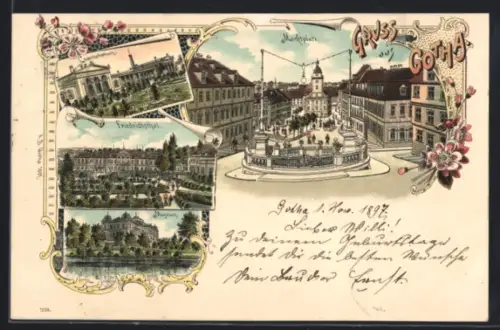 Gruss
aus
GOTHA.
Marktplatz.
Friedrichsthal.
Museum.
Gotha 1. Nov. 1897.
Lieber Willi!
Zu deinem Geburtstage
sendet dir die besten Wünsche
Dein Bruder Ernst.